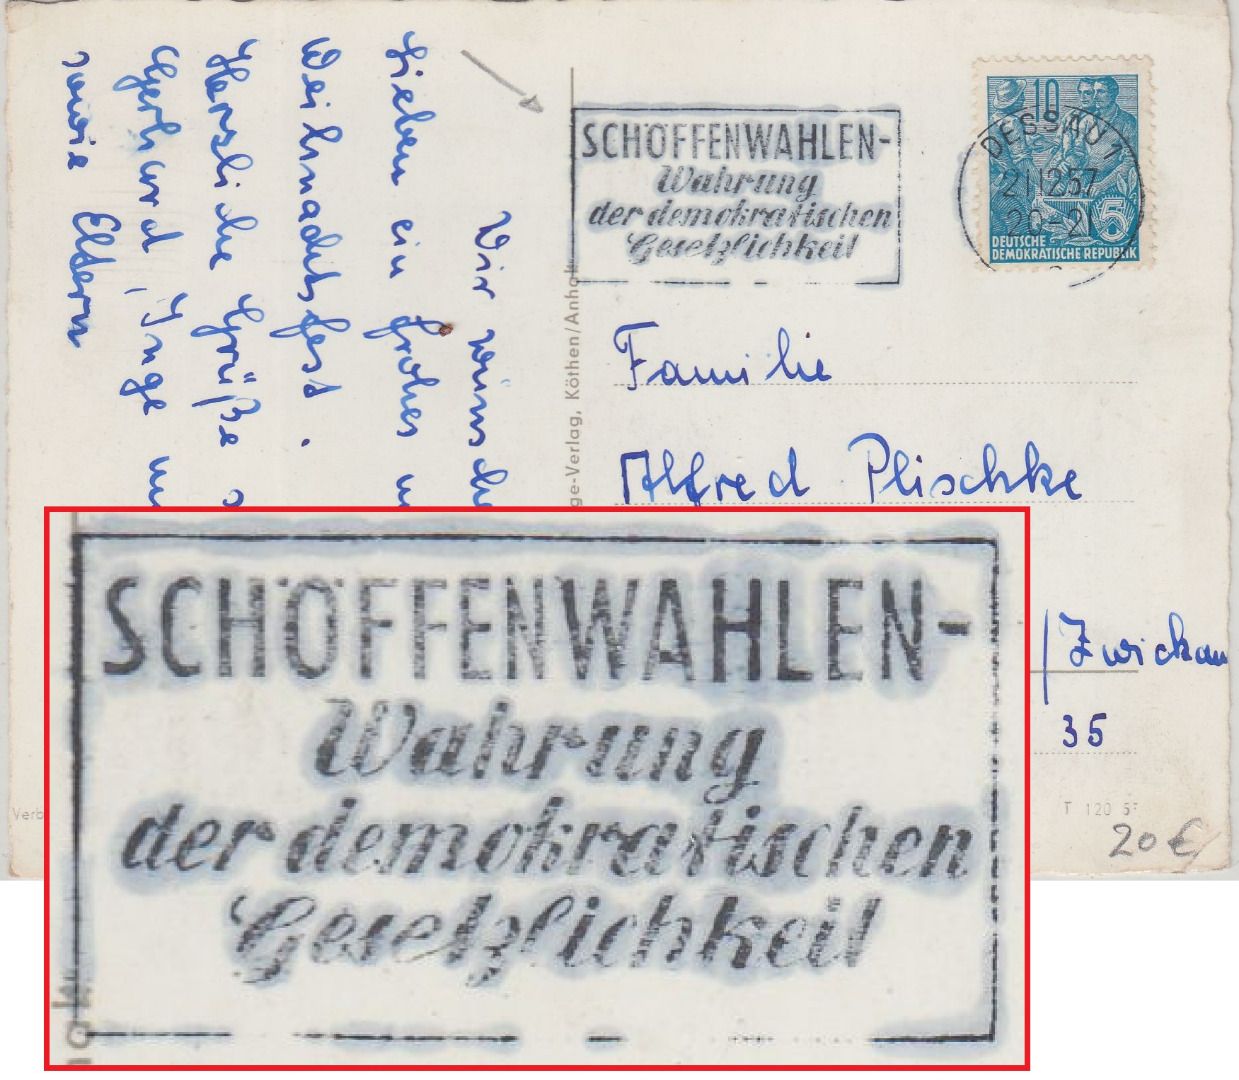 Wir wünsche
Lieben ein frohes
Weihnachtsfest.
Herzliche Grüße
Gerhard, Inge
sowie Eltern
SCHÖFFENWAHLEN-
Wahrung
der demokratischen
Gesetzlichkeit
10
DESSAU 1
21.12.57
20-21
5
DEUTSCHE
DEMOKRATISCHE REPUBLIK
ge-Verlag, Köthen/Anhalt
Familie
Alfred Plischke
/Zwickau
35
Verb
T 120 5
20 €
SCHÖFFENWAHLEN-
Wahrung
der demokratischen
Gesetzlichkeit